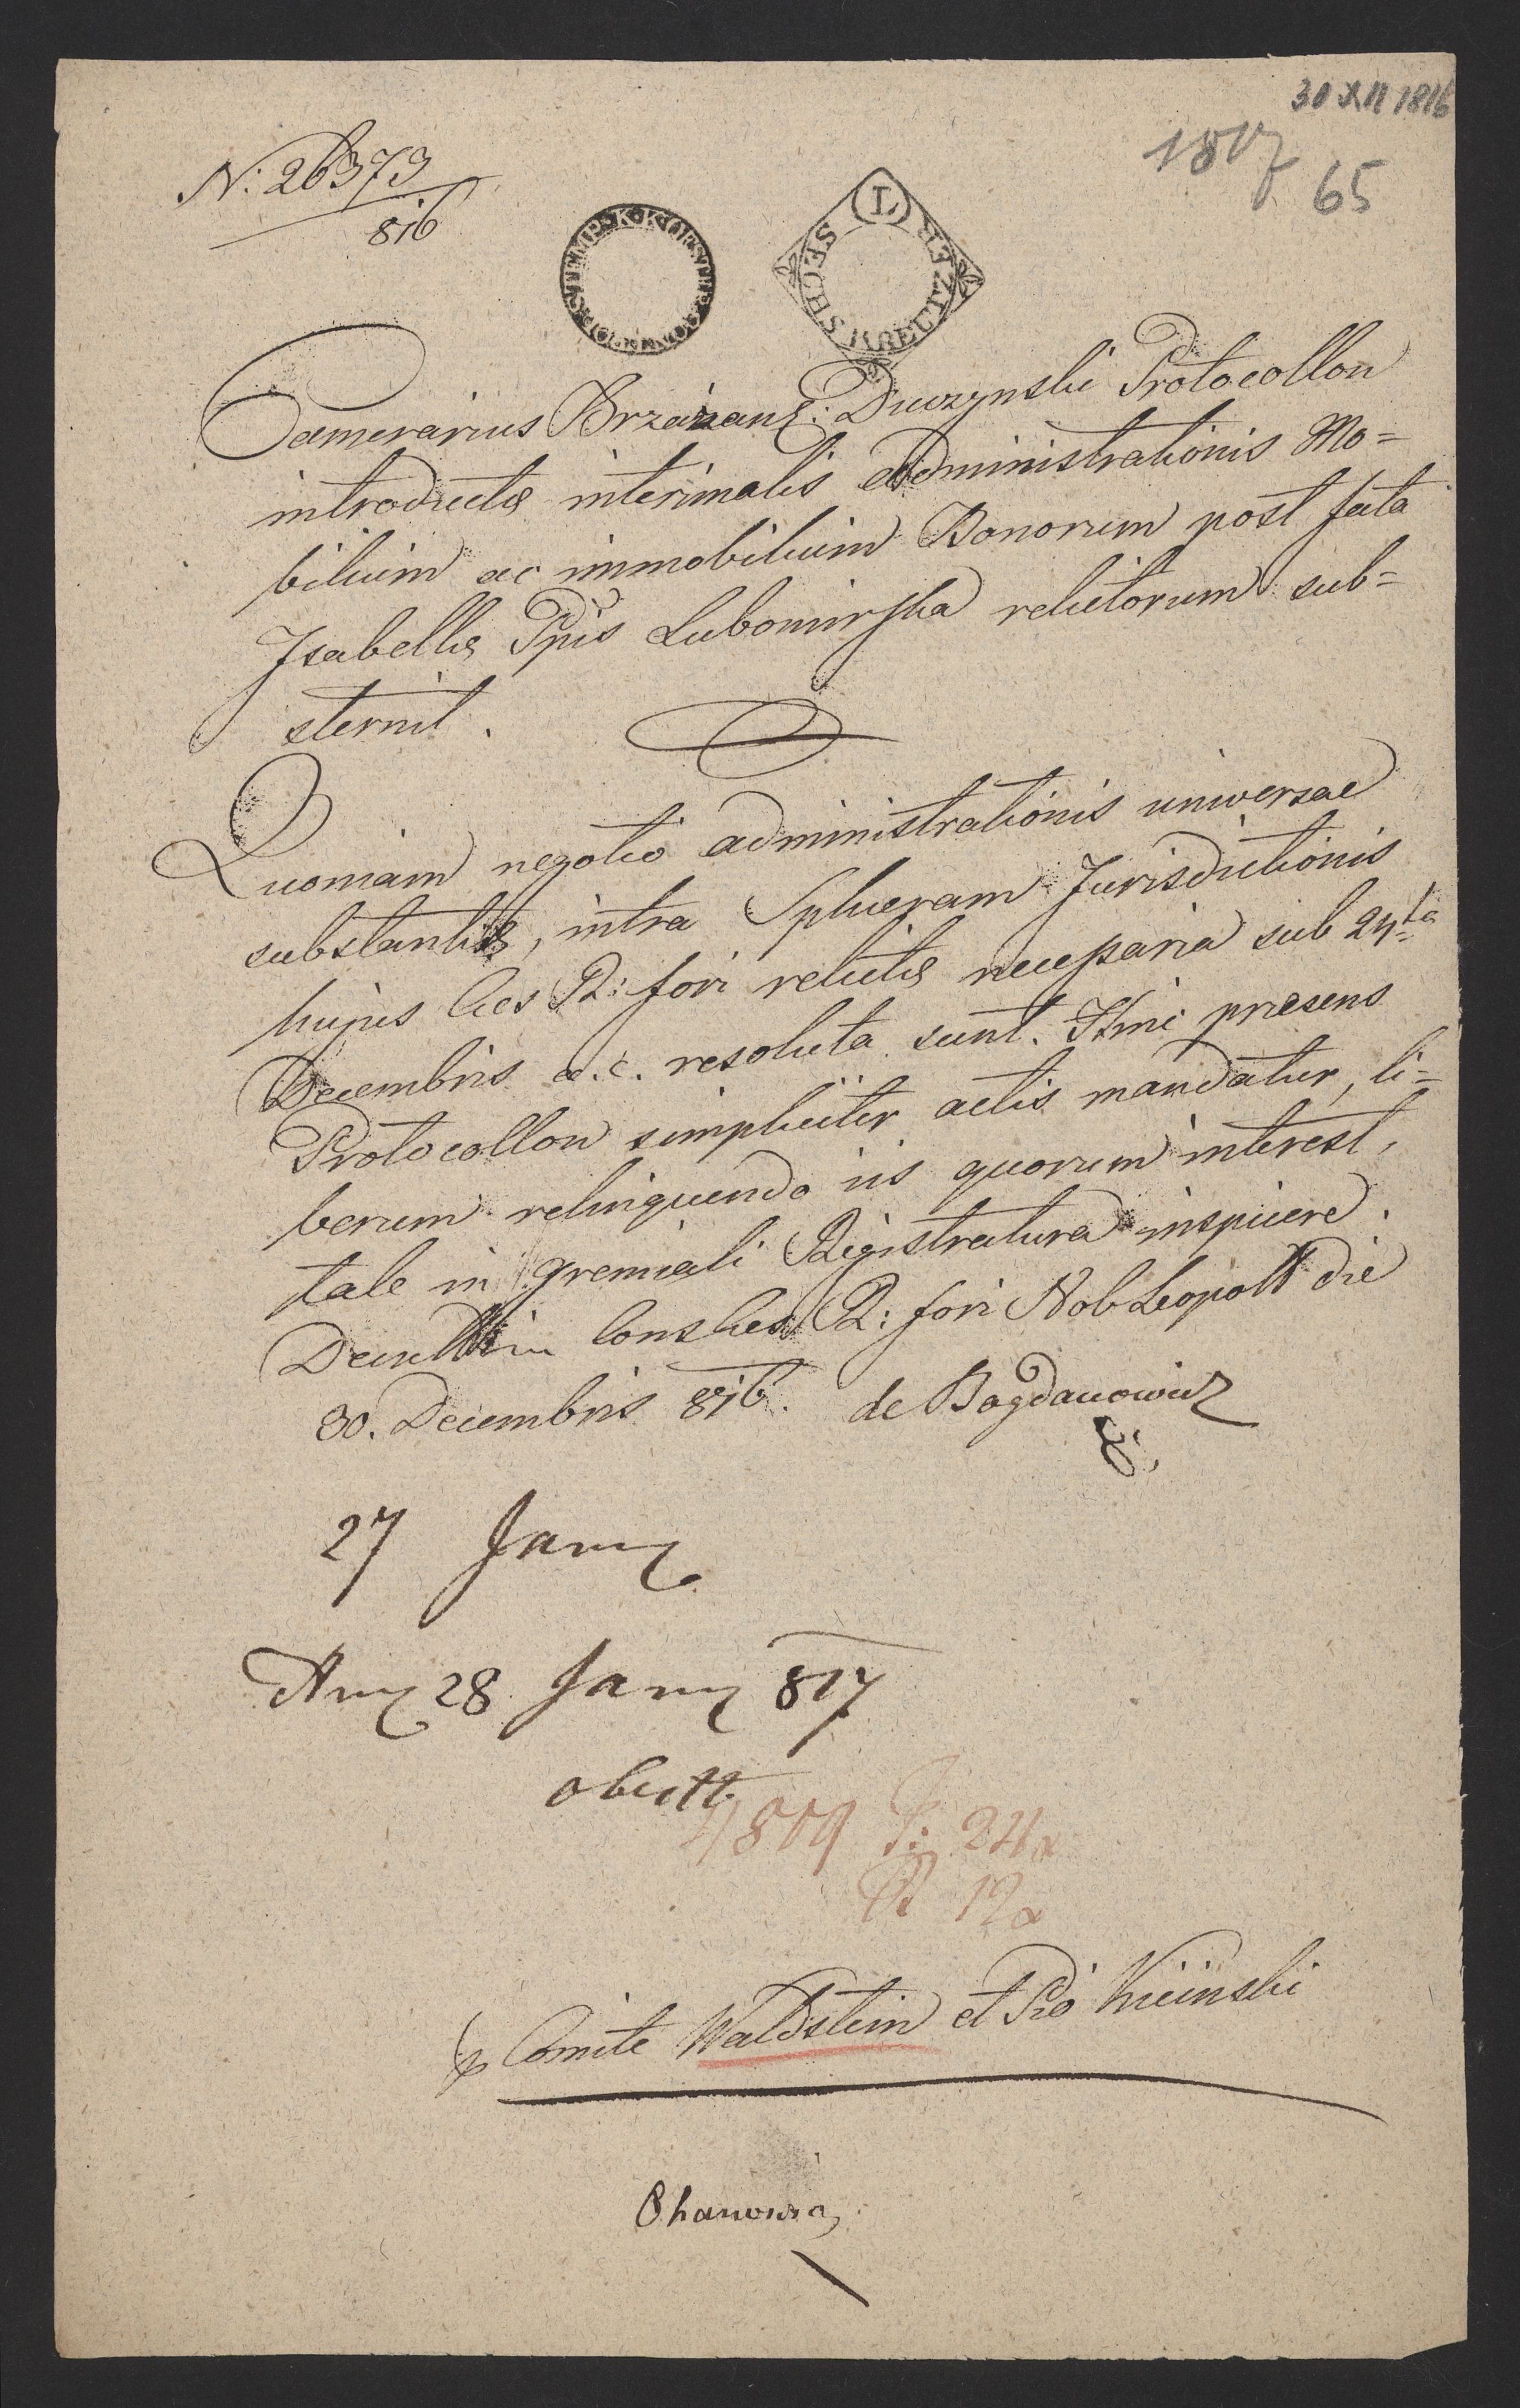 30 XII 1816
1817
65
N: 26373
816
K. K. OESTER
SECHS KREUTZER
L
Camerarius Brzezan: Duczynski Protocollon
introductæ interimalis Administrationis Mo=
bilium ac immobilium Bonorum post fata
Isabellæ Ppis Lubomirska relictorum sub=
sternit.
Quoniam negotio administrationis universae
substantiæ, intra Sphaeram Jurisdictionis
hujus Ces R: fori relictæ necessaria sub 24ta
Decembris a. c. resoluta sunt. Hinc praesens
Protocollon simpliciter actis mandatur, li=
berum relinquendo iis quorum interest,
tale in gremiali Registratura inspicere.
Decretum in Cons Ces R: fori Nob Leopolt die
30. Decembris 816. de Bogdanowicz
27 Jany
28 Jany 817
24x
12x
Comite Waldstein et Pio